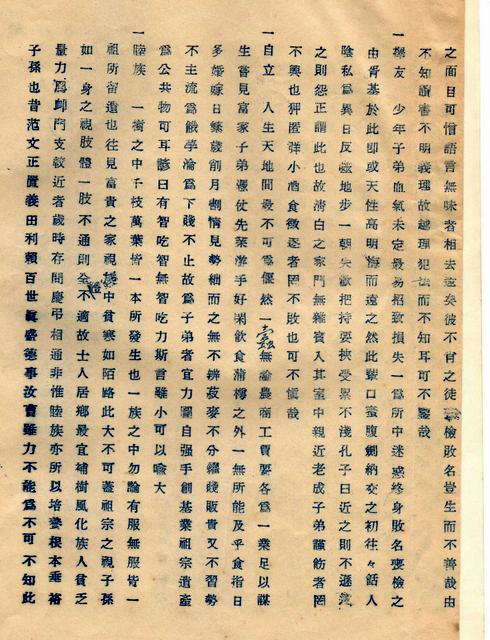 之面目可憎語言無味者相去遠矣彼不肖之徒檢敗名豈生而不善哉由
不知讀書不明義理故越理犯法而不知耳可不鑒哉
一擇友 少年子弟血氣未定最易招致損失一為所中迷惑終身敗名喪檢之
由肯基於此即或天性高明悔而遠之然此輩口蜜腹劍納交之初往々餂人
陰私為異日反噬地步一朝失歡把持要挾受累不淺孔子曰近之則不遜遠
之則怨正謂此也故清白之家門無雜賓入其室中親近老成子弟謹飭者罔
不興也狎匿弹小酒食徵逐者罔不敗也可不慎哉
一自立 人生天地間最不可為偃然一蠹無論農商工賈要各為一業足以謀
生嘗見富家子弟憑仗先業游手好閑飲食蒲樗之外一無所能及乎食指日
多婚嫁日繁歲削月割情見勢絀而之無不辨菽麥不分繼賤販貴又不習勢
不主流為餓學淪為下賤不止故為子弟者宜力圖自强手創基業祖宗遺產
為公共物可耳諺曰有智吃智無智吃力斯言雖小可以喻大
一睦族 一樹之中千枝萬葉皆一本所發生也一族之中勿論有服無服皆一
祖所留遺也往見富貴之家視族中貧寒如陌路此大不可蓋祖宗之視子孫
如一身之視肢體一肢不通則全體不適故士人居鄉最宜補樹風化族人貧乏
量力為賙門支較近者歲時存問慶弔相通非惟睦族亦所以培養根本垂裕
子孫也昔范文正置義田利賴百世眞盛德事汝曹雖力不能為不可不知此